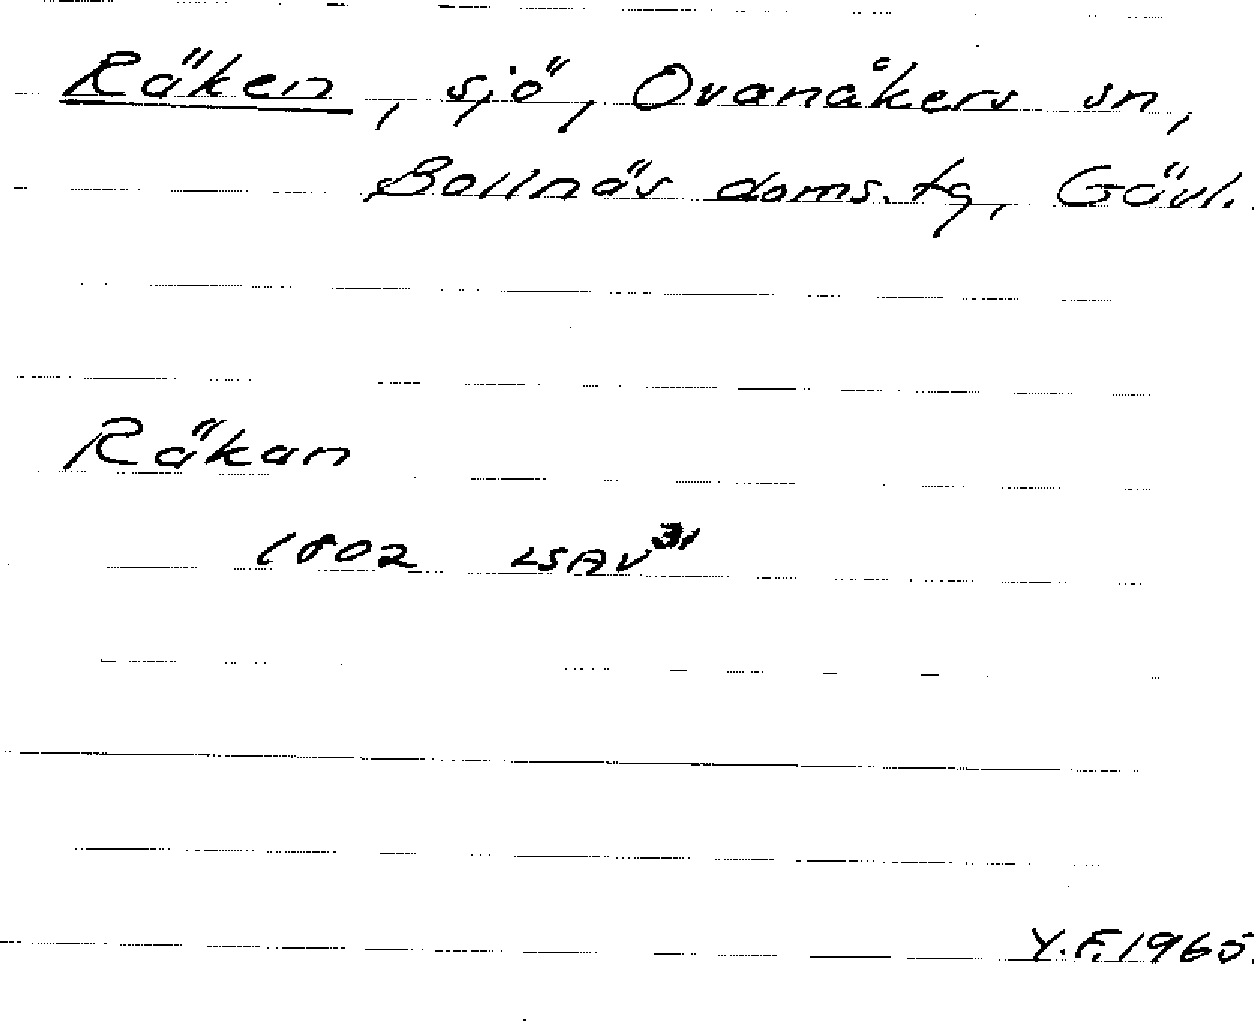 Räken, sjö, Ovanåkers sn,
Bollnäs doms.tg, Gävl.
Räkan
1802 LSAV
Y.F. 1965.